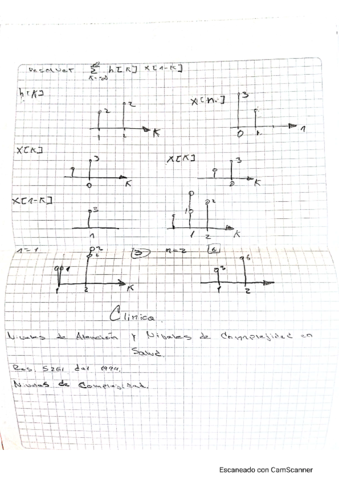 Resolver ∞ Σ h[k] x[1-k]
h[k]
2 2
1 2 k
x[n]
3
0 1
x[k]
3
0 k
x[k]
3
0 k
x[1-k]
3
1
2
1 2 k
n=2
1 2 k
3 6
1 2
Clinica
Niveles de Atención y Niveles de Complejidad en
Salud
Res. 5261 del 1994.
Niveles de Complejidad.
Escaneado con CamScanner